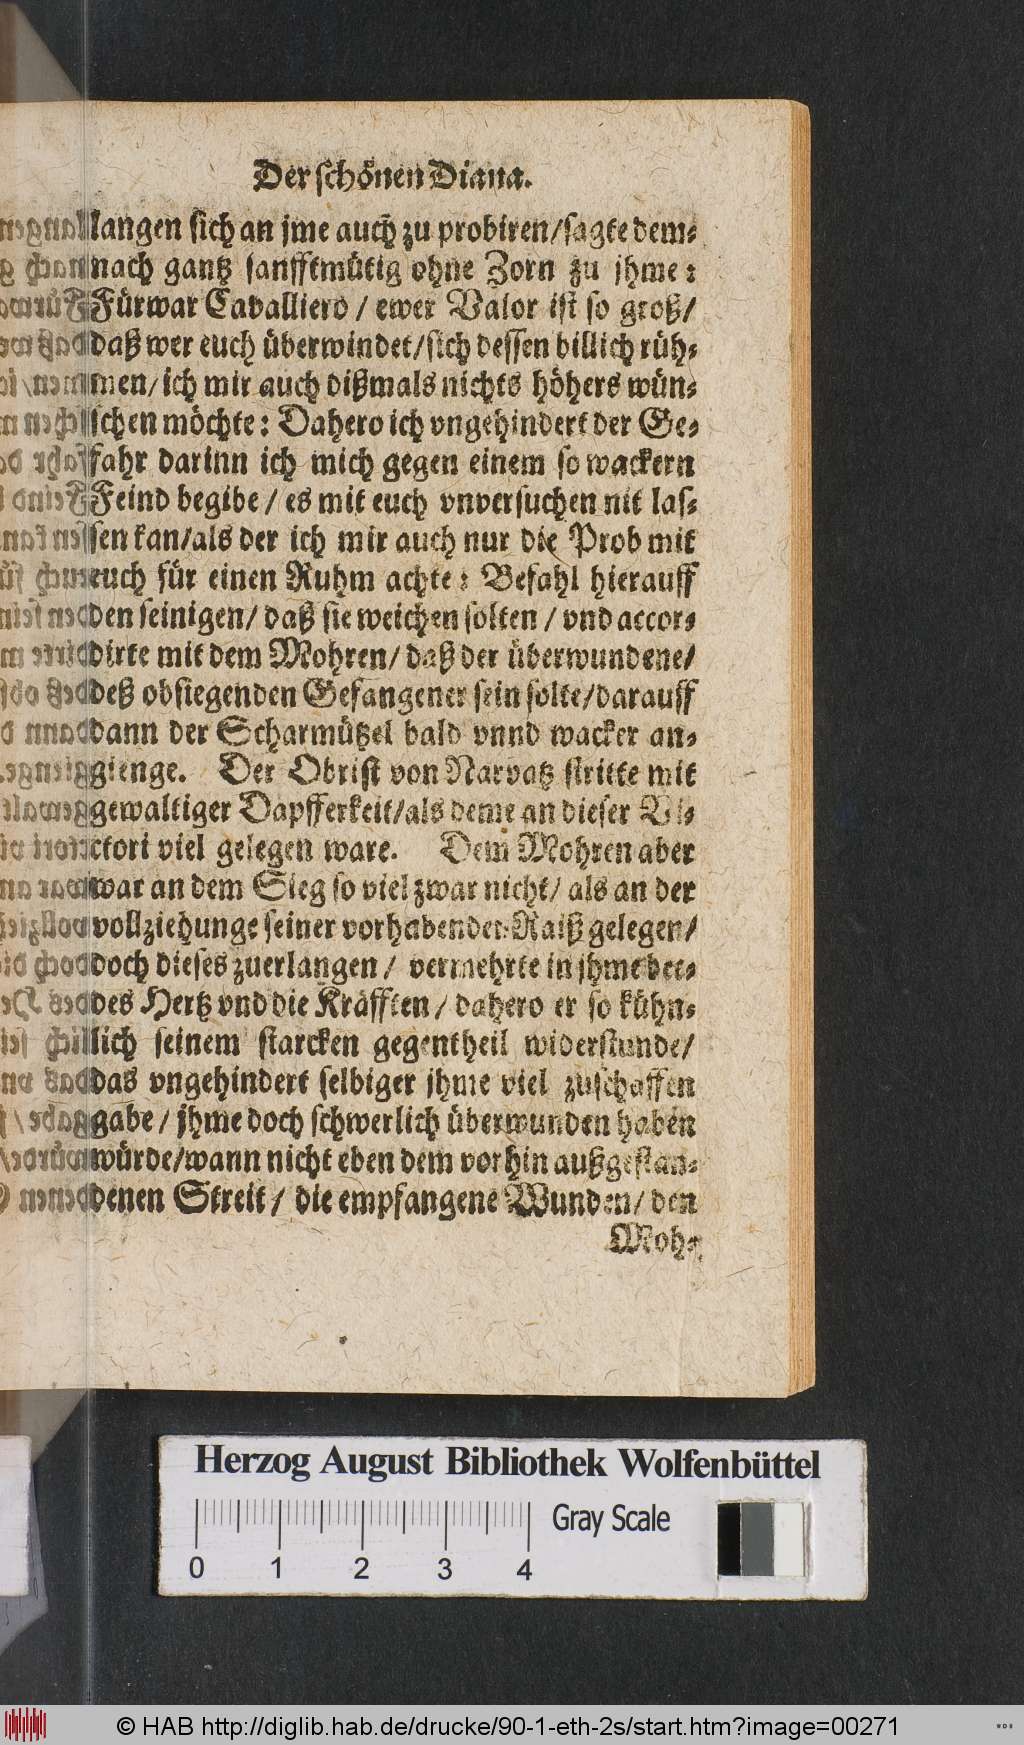 Der schönen Diana.
langen sich an jme auch zu probiren/sagte dem⸗
nach gantz sanfftmütig ohne Zorn zu jhme:
Fürwar Cavalliero / ewer Valor ist so groß/
daß wer euch überwindet/sich dessen billich rüh⸗
men/ ich mir auch dißmals nichts höhers wün⸗
schen möchte: Dahero ich vngehindert der Ge⸗
fahr darinn ich mich gegen einem so wackern
Feind begibe / es mit euch vnversuchen nit las⸗
sen kan/als der ich mir auch nur die Prob mit
euch für einen Ruhm achte: Befahl hierauff
den seinigen/ daß sie weichen solten / vnd accor⸗
dirte mit dem Mohren/ daß der überwundene/
deß obsiegenden Gefangener sein solte/darauff
dann der Scharmützel bald vnnd wacker an⸗
gienge. Der Obrist von Narvatz stritte mit
gewaltiger Dapfferkeit/als deme an dieser Vi⸗
ctori viel gelegen ware. Dem Mohren aber
war an dem Sieg so viel zwar nicht/ als an der
vollziehunge seiner vorhabenden Raiß gelegen/
doch dieses zuerlangen / vermehrte in jhme bee⸗
des Hertz vnd die Kräfften / dahero er so kühn⸗
lich seinem starcken gegentheil widerstunde/
das vngehindert selbiger jhme viel zuschaffen
gabe / jhme doch schwerlich überwunden haben
würde/wann nicht eben dem vorhin außgestan⸗
denen Streit / die empfangene Wunden/ den
Moh⸗
Herzog August Bibliothek Wolfenbüttel
Gray Scale
0 1 2 3 4
© HAB http://diglib.hab.de/drucke/90-1-eth-2s/start.htm?image=00271